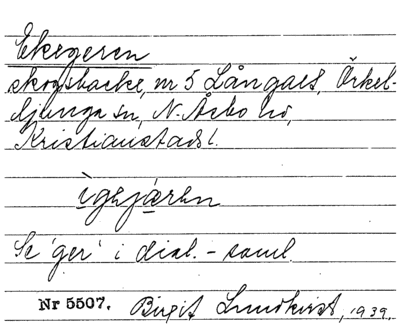 Ekegeren
skogsbacke, nr 5 Långalt, Örkel-
ljunga sn, N. Åsbo hd,
Kristianstads l.
ìgejæren
Se 'ger' i dial. - saml.
Nr 5507. Birgit Lundkvist, 1939.